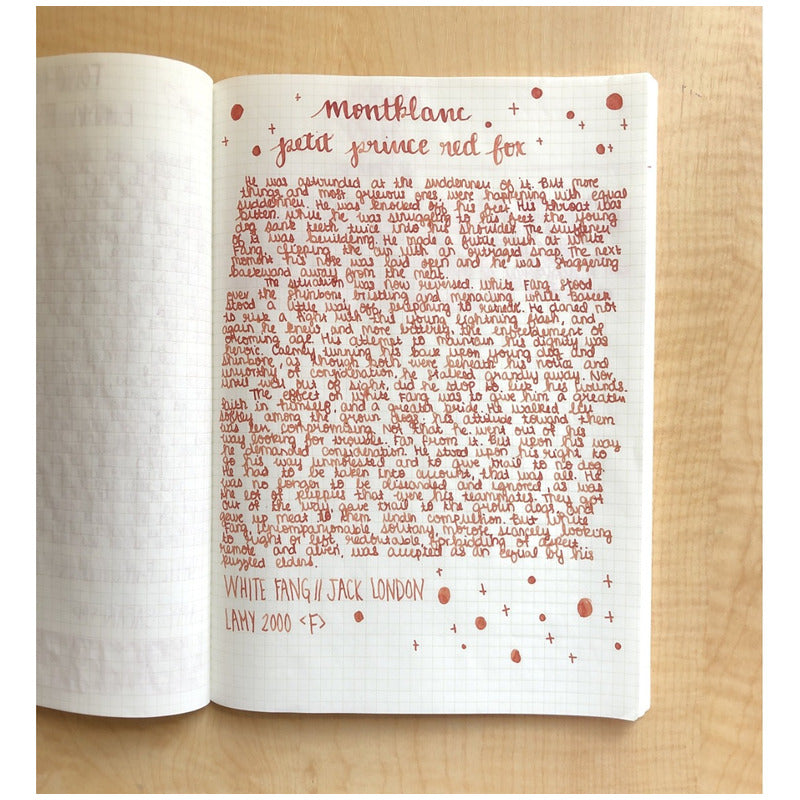 montblanc
petit prince red fox
He was astounded at the suddenness of it. But more
things, and most grievous ones, were happening with equal
suddenness. He was knocked off his feet. His throat was
bitten. While he was struggling to his feet the young
dog sank teeth twice into his shoulder. The suddenness
of it was bewildering. He made a futile rush at White
Fang, clipping the air with an outraged snap. The next
moment his nose was laid open and he was staggering
backward away from the meat.
The situation was now reversed. White Fang stood
over the shinbone, bristling and menacing, while Baseek
stood a little way off, preparing to retreat. He dared not
to risk a fight with this young lightning flash, and
again he knew, and more bitterly, the enfeeblement of
oncoming age. His attempt to maintain his dignity was
heroic. Calmly turning his back upon young dog and
shinbone, as though both were beneath his notice and
unworthy of consideration, he stalked grandly away. Nor,
until well out of sight, did he stop to lick his wounds.
The effect on White Fang was to give him a greater
faith in himself, and a greater pride. He walked less
softly among the grown dogs; his attitude toward them
was less compromising. Not that he went out of his
way looking for trouble. Far from it. But upon his way
he demanded consideration. He stood upon his right to
go his way unmolested and to give trail to no dog.
He has to be taken into account, that was all. He
was no longer to be disregarded and ignored as was
the lot of puppies that were his teammates. They got
out of the way, gave trail to the grown dogs, and
gave up meat to them under compulsion. But White
Fang, uncompanionable, solitary, morose, scarcely looking
to right or left, redoubtable, forbidding of aspect,
remote and alien, was accepted as an equal by his
puzzled elders.
WHITE FANG // JACK LONDON
LAMY 2000 <F>